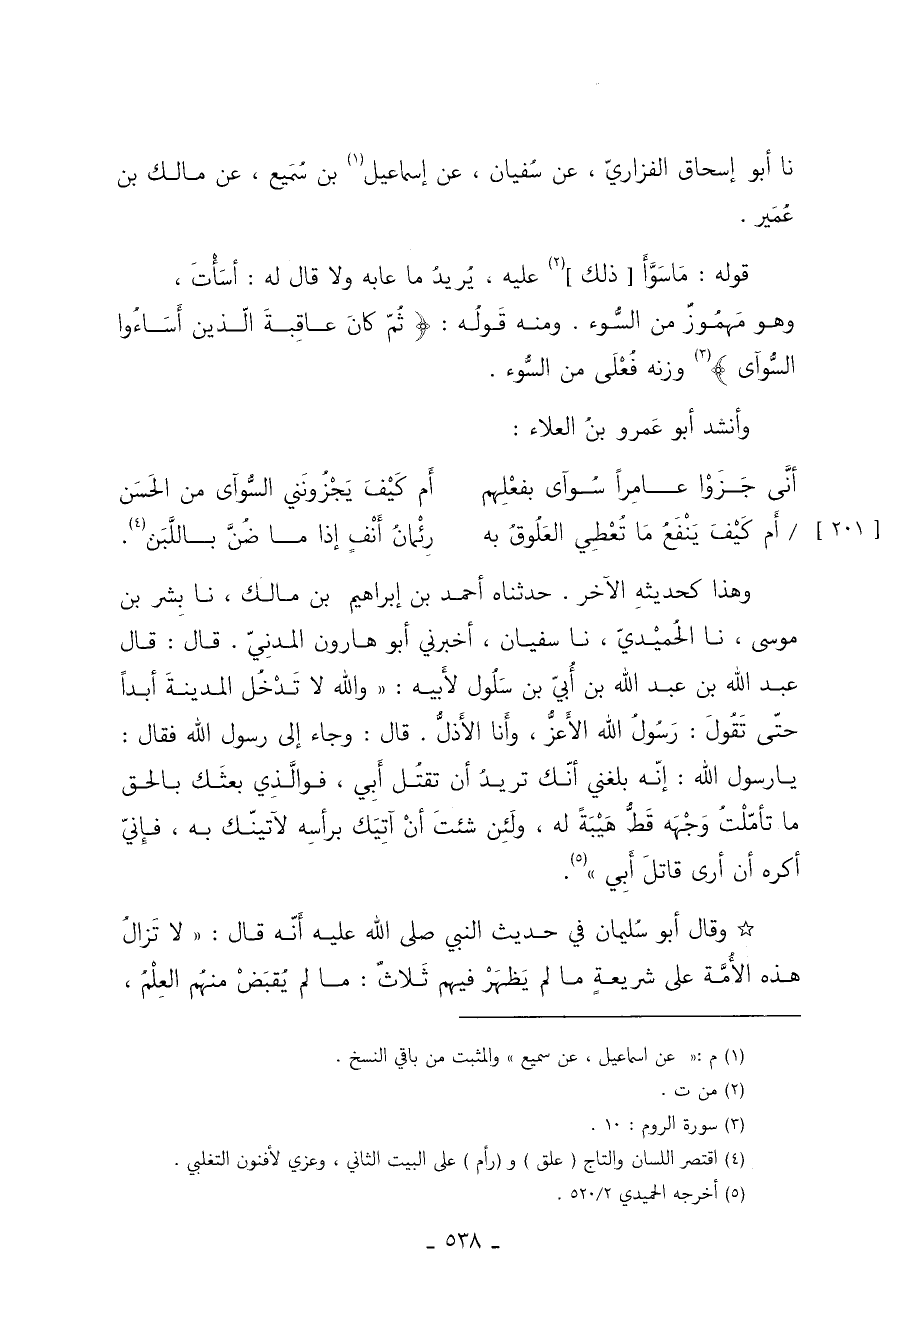 نا أبو إسحاق الفزاريّ ، عن سُفيان ، عن إسماعيل(١) بن سُمَيع ، عن مالك بن
عُمَير .
قوله : مَاسَوَّأَ [ ذلك ](٢) عليه ، يُريدُ ما عابه ولا قال له : أسَأْتَ ،
وهو مَهمُوزٌ من السُّوء . ومنه قولُه : ﴿ ثُمّ كانَ عاقبةَ الّذين أَسَاءُوا
السُّوآى ﴾(٣) وزنه فُعْلَى من السُّوء .
وأنشد أبو عَمرو بنُ العلاء :
أنَّى جَزَوْا عامِراً سُوآى بفعْلِهم أَم كَيْفَ يَجْزُونَني السُّوآى من الحَسَن
[ ٢٠١ ] / أَم كَيْفَ يَنْفَعُ مَا تُعْطِي العَلُوقُ به رِئْمَانُ أَنْفٍ إذا ما ضُنَّ باللَّبَن(٤).
وهذا كحديثهِ الآخر . حدثناه أحمد بن إبراهيم بن مالك ، نا بشر بن
موسى ، نا الحُميْديّ ، نا سفيان ، أخبرني أبو هارون المدنيّ . قال : قال
عبد الله بن عبد الله بن أُبيّ بن سَلُول لأَبيه : « والله لا تَدْخُل المدينةَ أبداً
حتّى تَقُولَ : رَسُولُ الله الأعزُّ ، وأنا الأذلُّ . قال : وجاء إلى رسول الله فقال :
يارسول الله : إنّه بلغني أنّك تريدُ أن تقتُل أَبي ، فوالَّذي بعثَك بالحق
ما تأمّلْتُ وَجْهَه قَطُّ هَيْبَةً له ، ولَئِن شئتَ أنْ آتيَك برأسه لآتينّك به ، فإنيّ
أكره أن أرى قاتلَ أَبي »(٥).
☆ وقال أبو سُليمان في حديث النبي صلى الله عليه أنّه قال : « لا تَزالُ
هذه الأُمَّة على شريعةٍ ما لم يَظهَرْ فيهم ثَلاثٌ : ما لم يُقبَضْ منهُم العِلْمُ ،
(١) م :« عن اسماعيل ، عن سميع » والمثبت من باقي النسخ .
(٢) من ت .
(٣) سورة الروم : ١٠ .
(٤) اقتصر اللسان والتاج ( علق ) و (رأم ) على البيت الثاني ، وعزي لأفنون التغلبي .
(٥) أخرجه الحميدي ٥٢٠/٢ .
- ٥٣٨ -